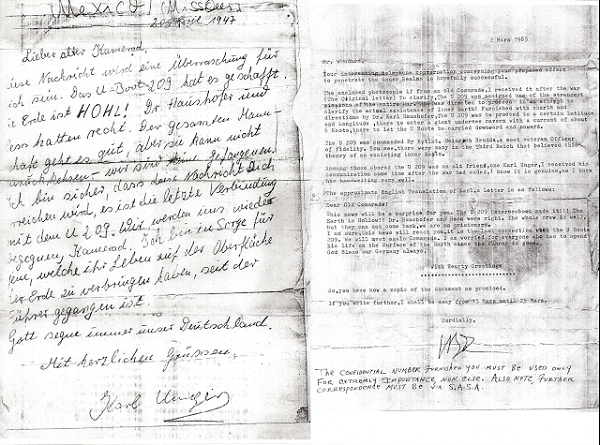 Mexico, Missouri
1947
Lieber alter Kamerad,
diese Nachricht wird eine Überraschung für
Dich sein. Das U-Boot 209 hat es geschafft.
Die Erde ist HOHL! Dr. Haushofer und
Hess hatten recht. Der gesamten Mann-
schaft geht es gut, aber sie kann nicht
wir sind Gefangene.
Ich bin sicher, dass diese Nachricht Dich
erreichen wird, es ist die letzte Verbindung
mit dem U 209. Wir werden uns wieder
begegnen, Kamerad. Ich bin in Sorge für
jene, welche ihr Leben auf der Oberfläche
der Erde zu verbringen haben, seit der
Führer gegangen ist.
Gott segne immer unser Deutschland.
Mit herzlichen Grüssen,
Karl Unger
2 Mars 1985
Mr.
Your interesting telephone conversation concerning your proposed effort
to penetrate the inner Realms is hopefully successful.
The enclosed photocopie if from an old Comarade, I received it after the war
(The Original Letter) To clarify, The U 209 was assigned one of the strangest
missions of the entire war. She was directed to proceed in an attempt to
clarify the actual existence of Inner World. Furnished with charts and
directions by Dr. Karl Haushofer, The U 209 was to proceed to a certain Latitude
and Longitude, there to enter a constant under current with a current of about
6 Knots, there to let the U Boote be carried downward and onward.
The U 209 was commanded By Kptlnt. Heinrich Brodda, a most veteran Officer
of fidelity. You see, there were many in the Third Reich that believed this
theory of an existing inner Realm.
Among those aboard the U 209 was an old friend, one Karl Unger, I received his
communication some time after the war had ended, I know it is genuine, as I knew
his handwriting very well.
The approximate English Translation of Karl's Letter is as follows:
Dear Old Comarade:
This news will be a surprise for you. The U 209 Unterseeboot made it!!! The
Earth is Hollow!! Dr. Haushofer and Hess were right. The whole crew is well
but they can not come back, we are no prisoners.
I am sure, this news will reach you, it is the last connection with the U Boote
209. We will meet again Comarade. I am worried for everyone who has to spend
his life on the Surface of the Earth since the Führer is gone.
God Bless our Germany always.
With Hearty Greetings
So, you have now a copie of the document as promised.
If you write further, I shall be away from 15 Mars until 25 Mars.
Cordially,
THE CONFIDENTIAL NUMBER FURNISHED YOU MUST BE USED ONLY
FOR EXTREMELY IMPORTANCE, NON ELSE. ALSO NOTE, FURTHER
CORRESPONDENCE MUST BE VIA S.A.S.A.